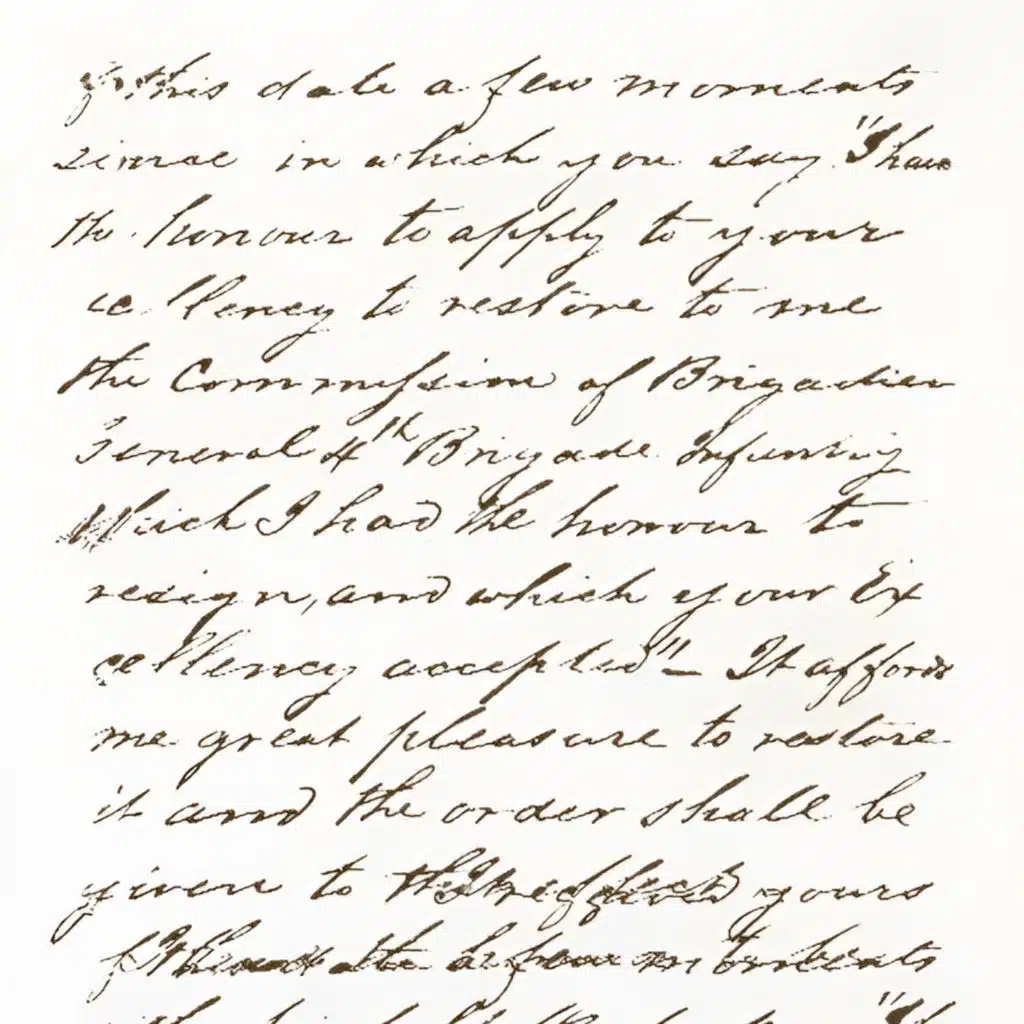 of this date a few moments
since in which you say "I have
the honour to apply to your
cellency to restore to me
the Commission of Brigadier
General 4th Brigade Infantry
Which I had the honour to
resign, and which your Ex
cellency accepted" – It affords
me great pleasure to restore
it and the order shall be
given to yours
a few